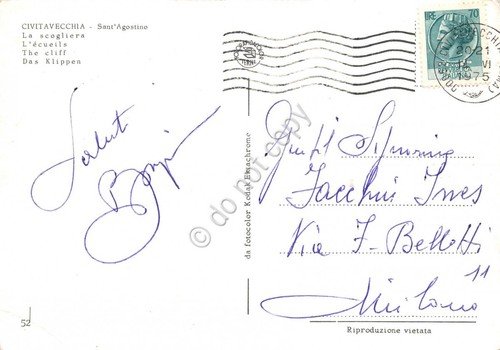 CIVITAVECCHIA - Sant'Agostino
La scogliera
L'écueils
The cliff
Das Klippen
Saluti
da fotocolor Kodak Ektachrome
52
70
20-21
VI
1975
Gent.le Signorina
Facchini Ines
Via F. Bellotti
11
Milano
Riproduzione vietata
© do not copy